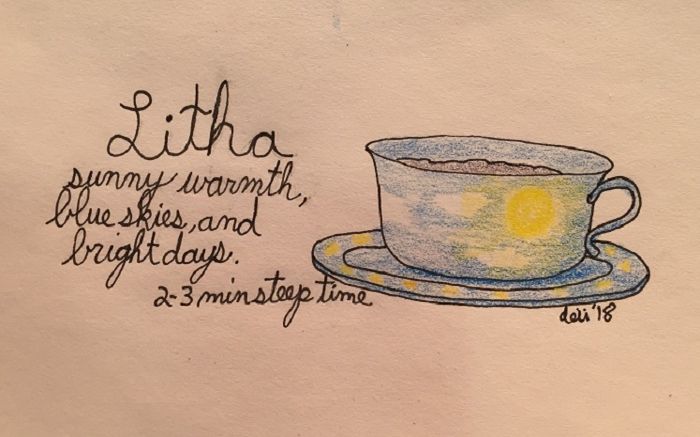 Litha
sunny warmth,
blue skies, and
bright days.
2-3 min steep time